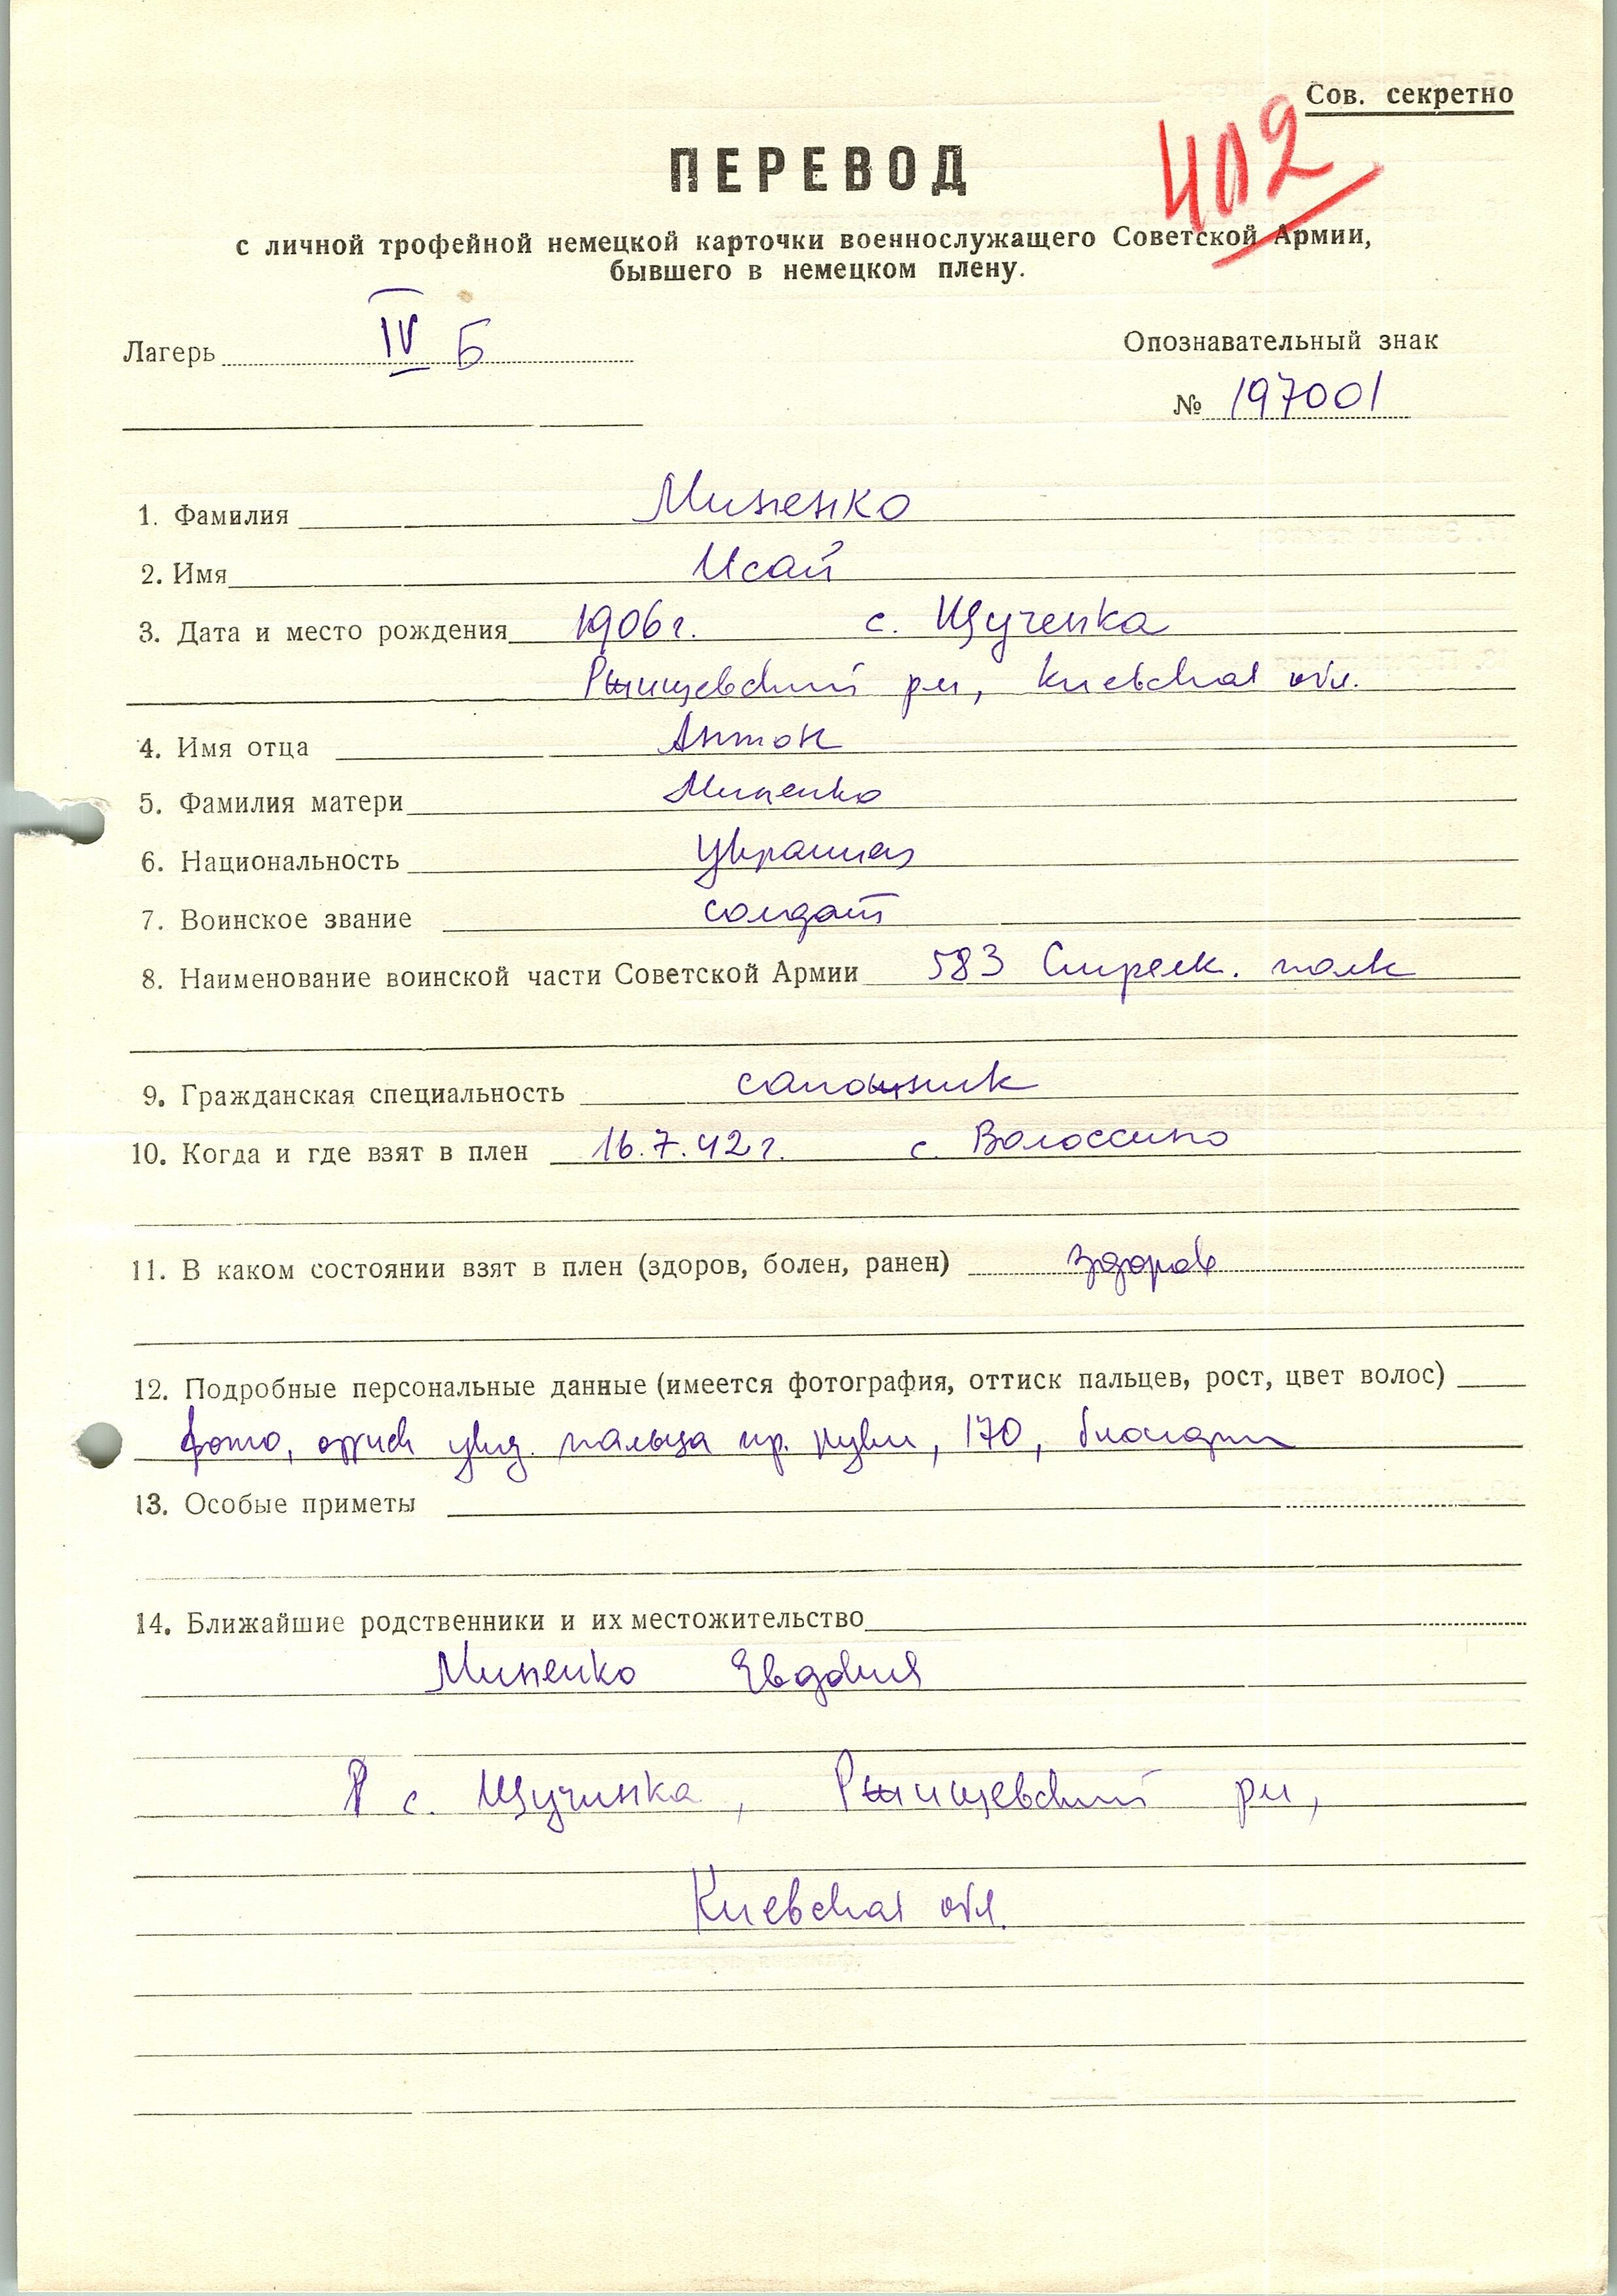 Сов. секретно
402
ПЕРЕВОД
с личной трофейной немецкой карточки военнослужащего Советской Армии,
бывшего в немецком плену.
Лагерь IV Б
Опознавательный знак
№ 197001
1. Фамилия Миненко
2. Имя Исай
3. Дата и место рождения 1906 г. с. Щученка
Ржищевский рн, Киевская обл.
4. Имя отца Антон
5. Фамилия матери Миненко
6. Национальность украинец
7. Воинское звание солдат
8. Наименование воинской части Советской Армии 583 Стрелк. полк
9. Гражданская специальность сапожник
10. Когда и где взят в плен 16.7.42 г. с. Волоссино
11. В каком состоянии взят в плен (здоров, болен, ранен) здоров
12. Подробные персональные данные (имеется фотография, оттиск пальцев, рост, цвет волос)
фото, оттиск указ. пальца пр. руки, 170, блондин
13. Особые приметы
14. Ближайшие родственники и их местожительство
Миненко Евдокия
с. Щучинка, Ржищевский рн,
Киевская обл.